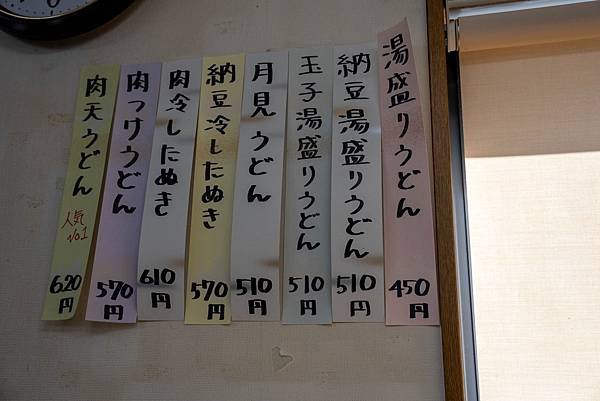 湯盛りうどん
450円
納豆湯盛りうどん
510円
玉子湯盛りうどん
510円
月見うどん
510円
納豆冷したぬき
570円
肉冷したぬき
610円
肉つけうどん
570円
肉天うどん
人気
No.1
620円